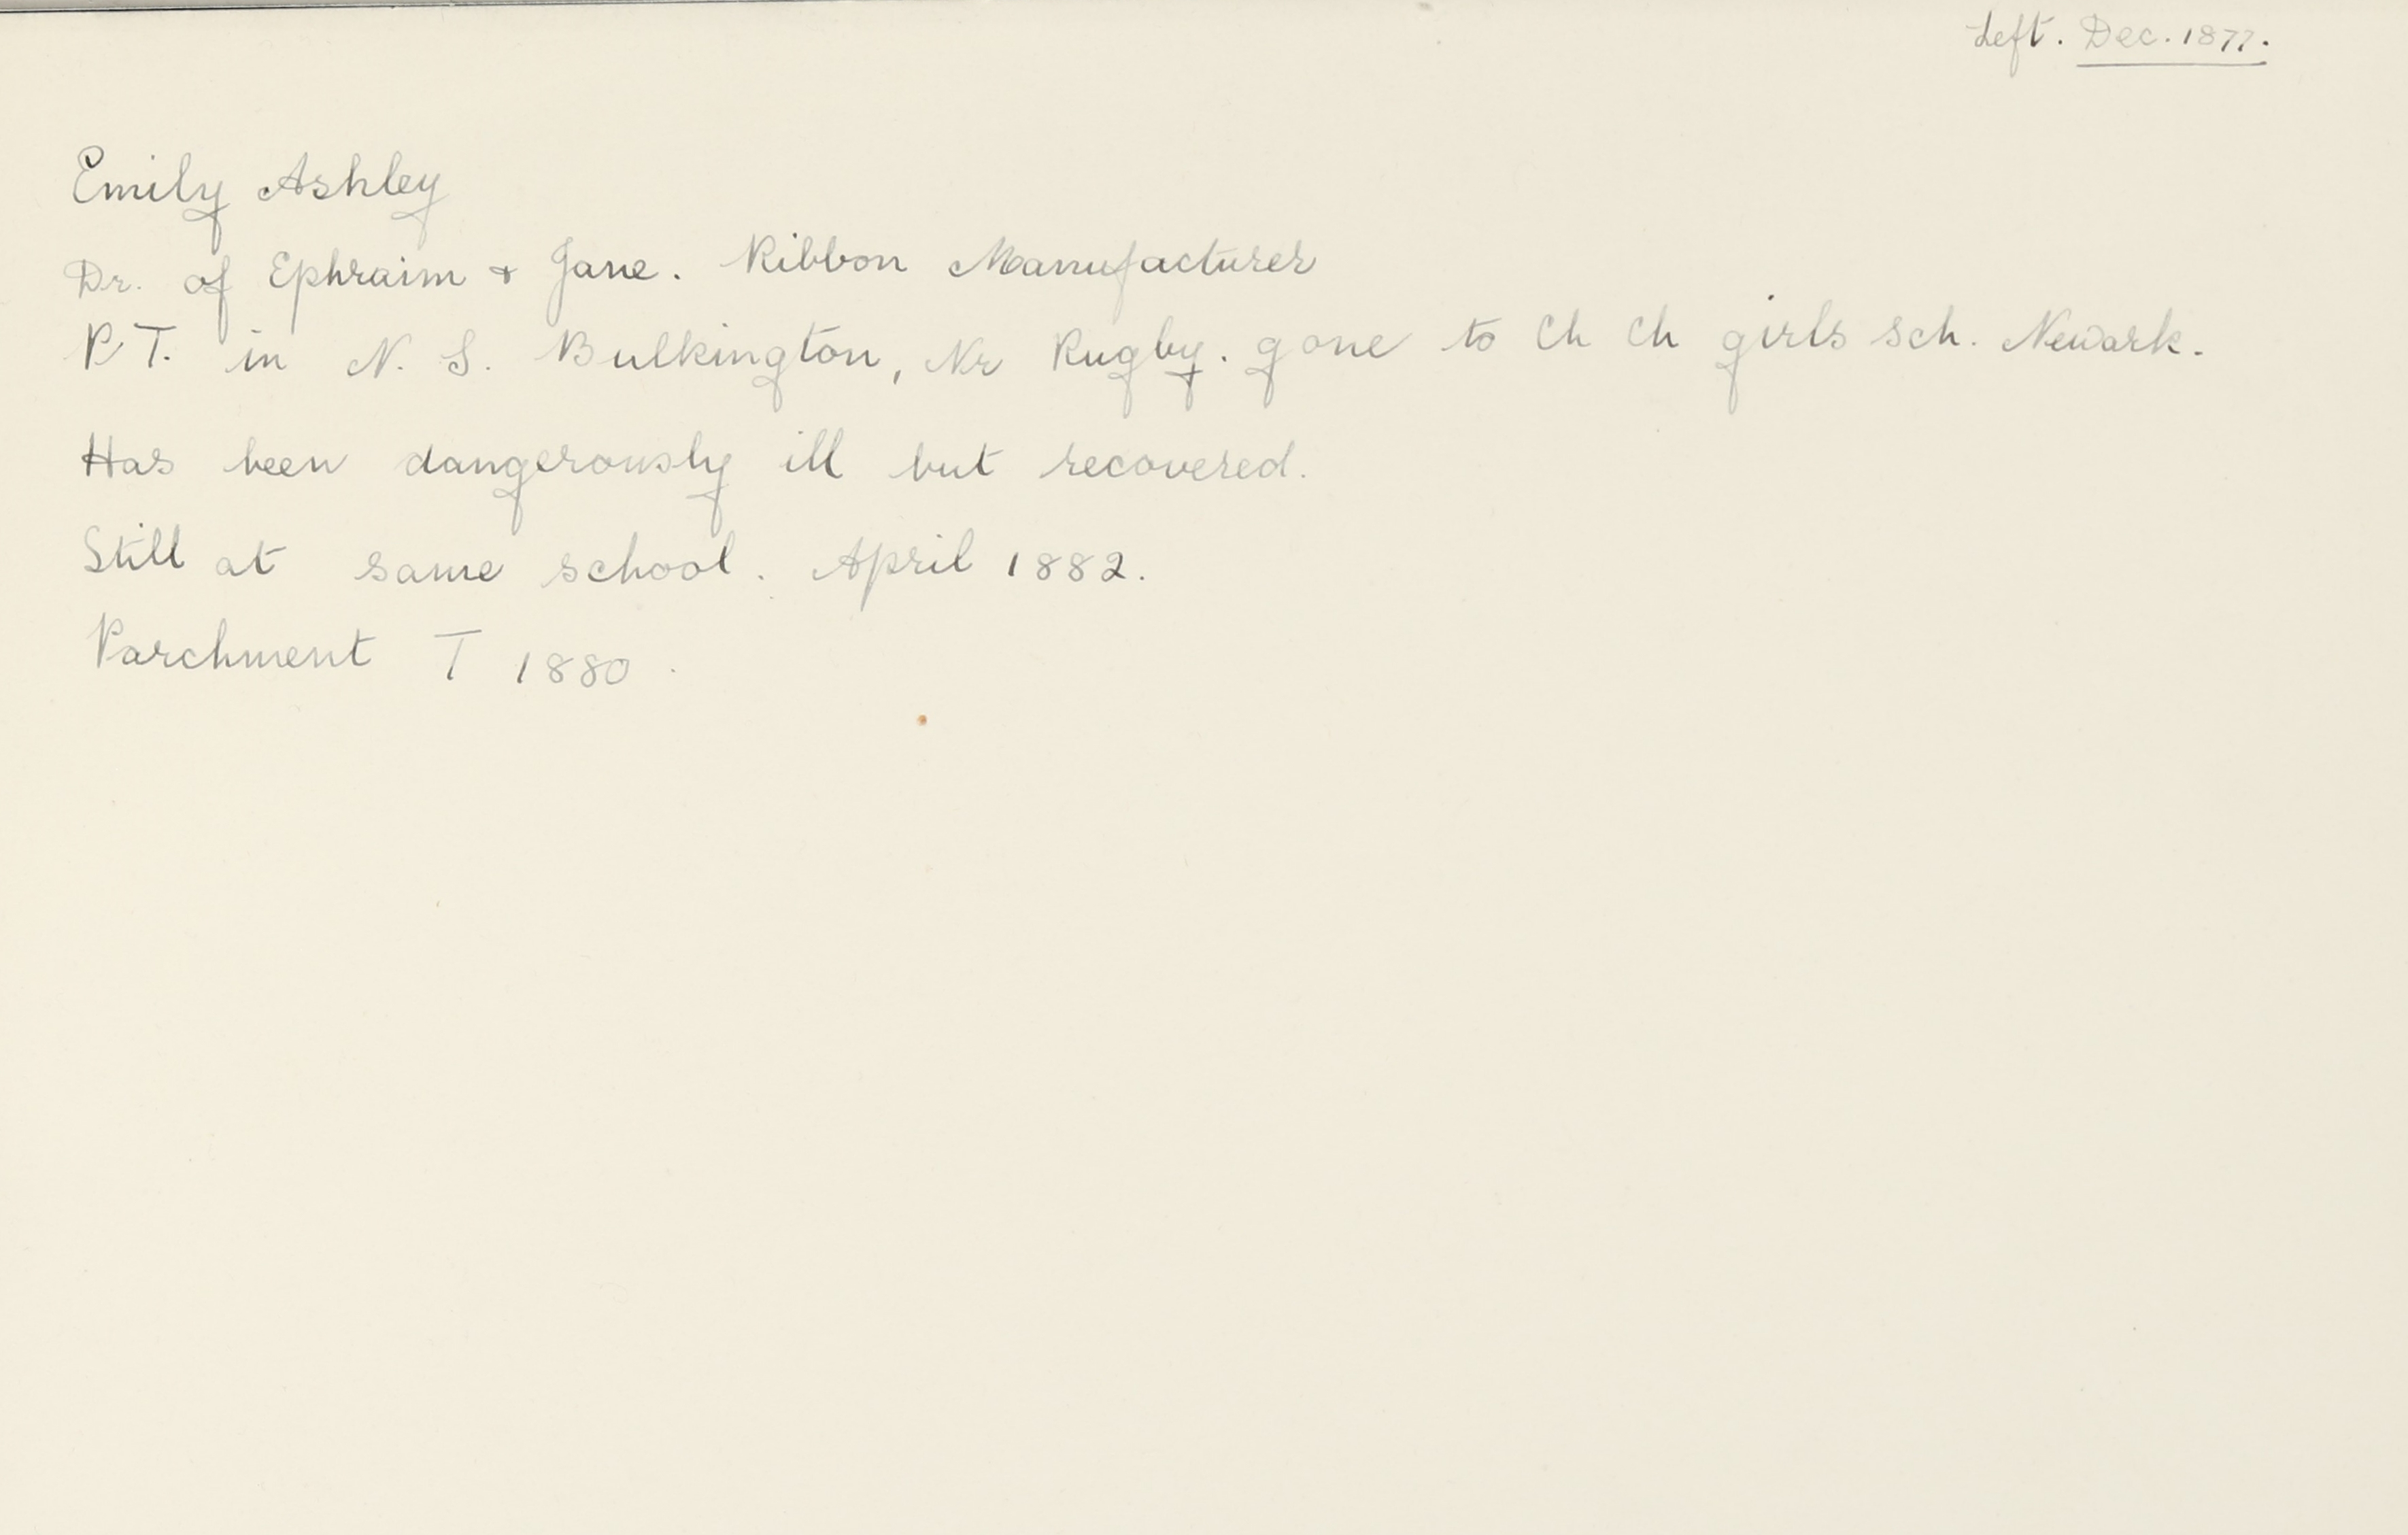 Left. Dec. 1877.
Emily Ashley
Dr. of Ephraim + Jane. Ribbon Manufacturer
P.T. in N. S. Bulkington, Nr Rugby. gone to Ch Ch girls sch. Newark.
Has been dangerously ill but recovered.
Still at same school. April 1882.
Parchment T 1880.